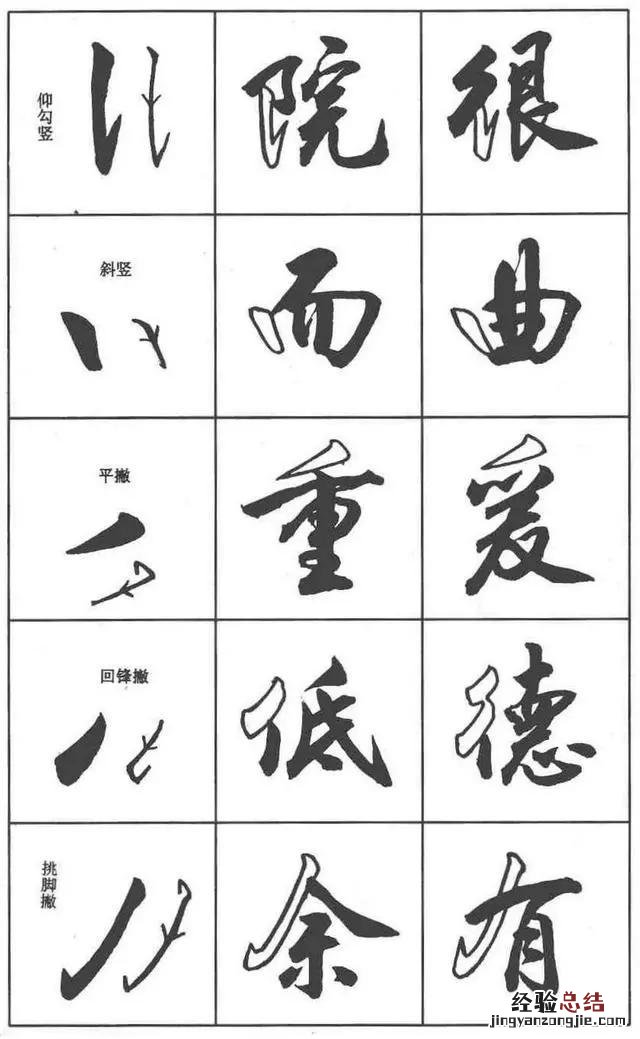 仰勾竖
院
很
斜竖
而
曲
平撇
重
爰
回锋撇
低
德
挑脚撇
余
有
经验总结
jingyanzongjie.com